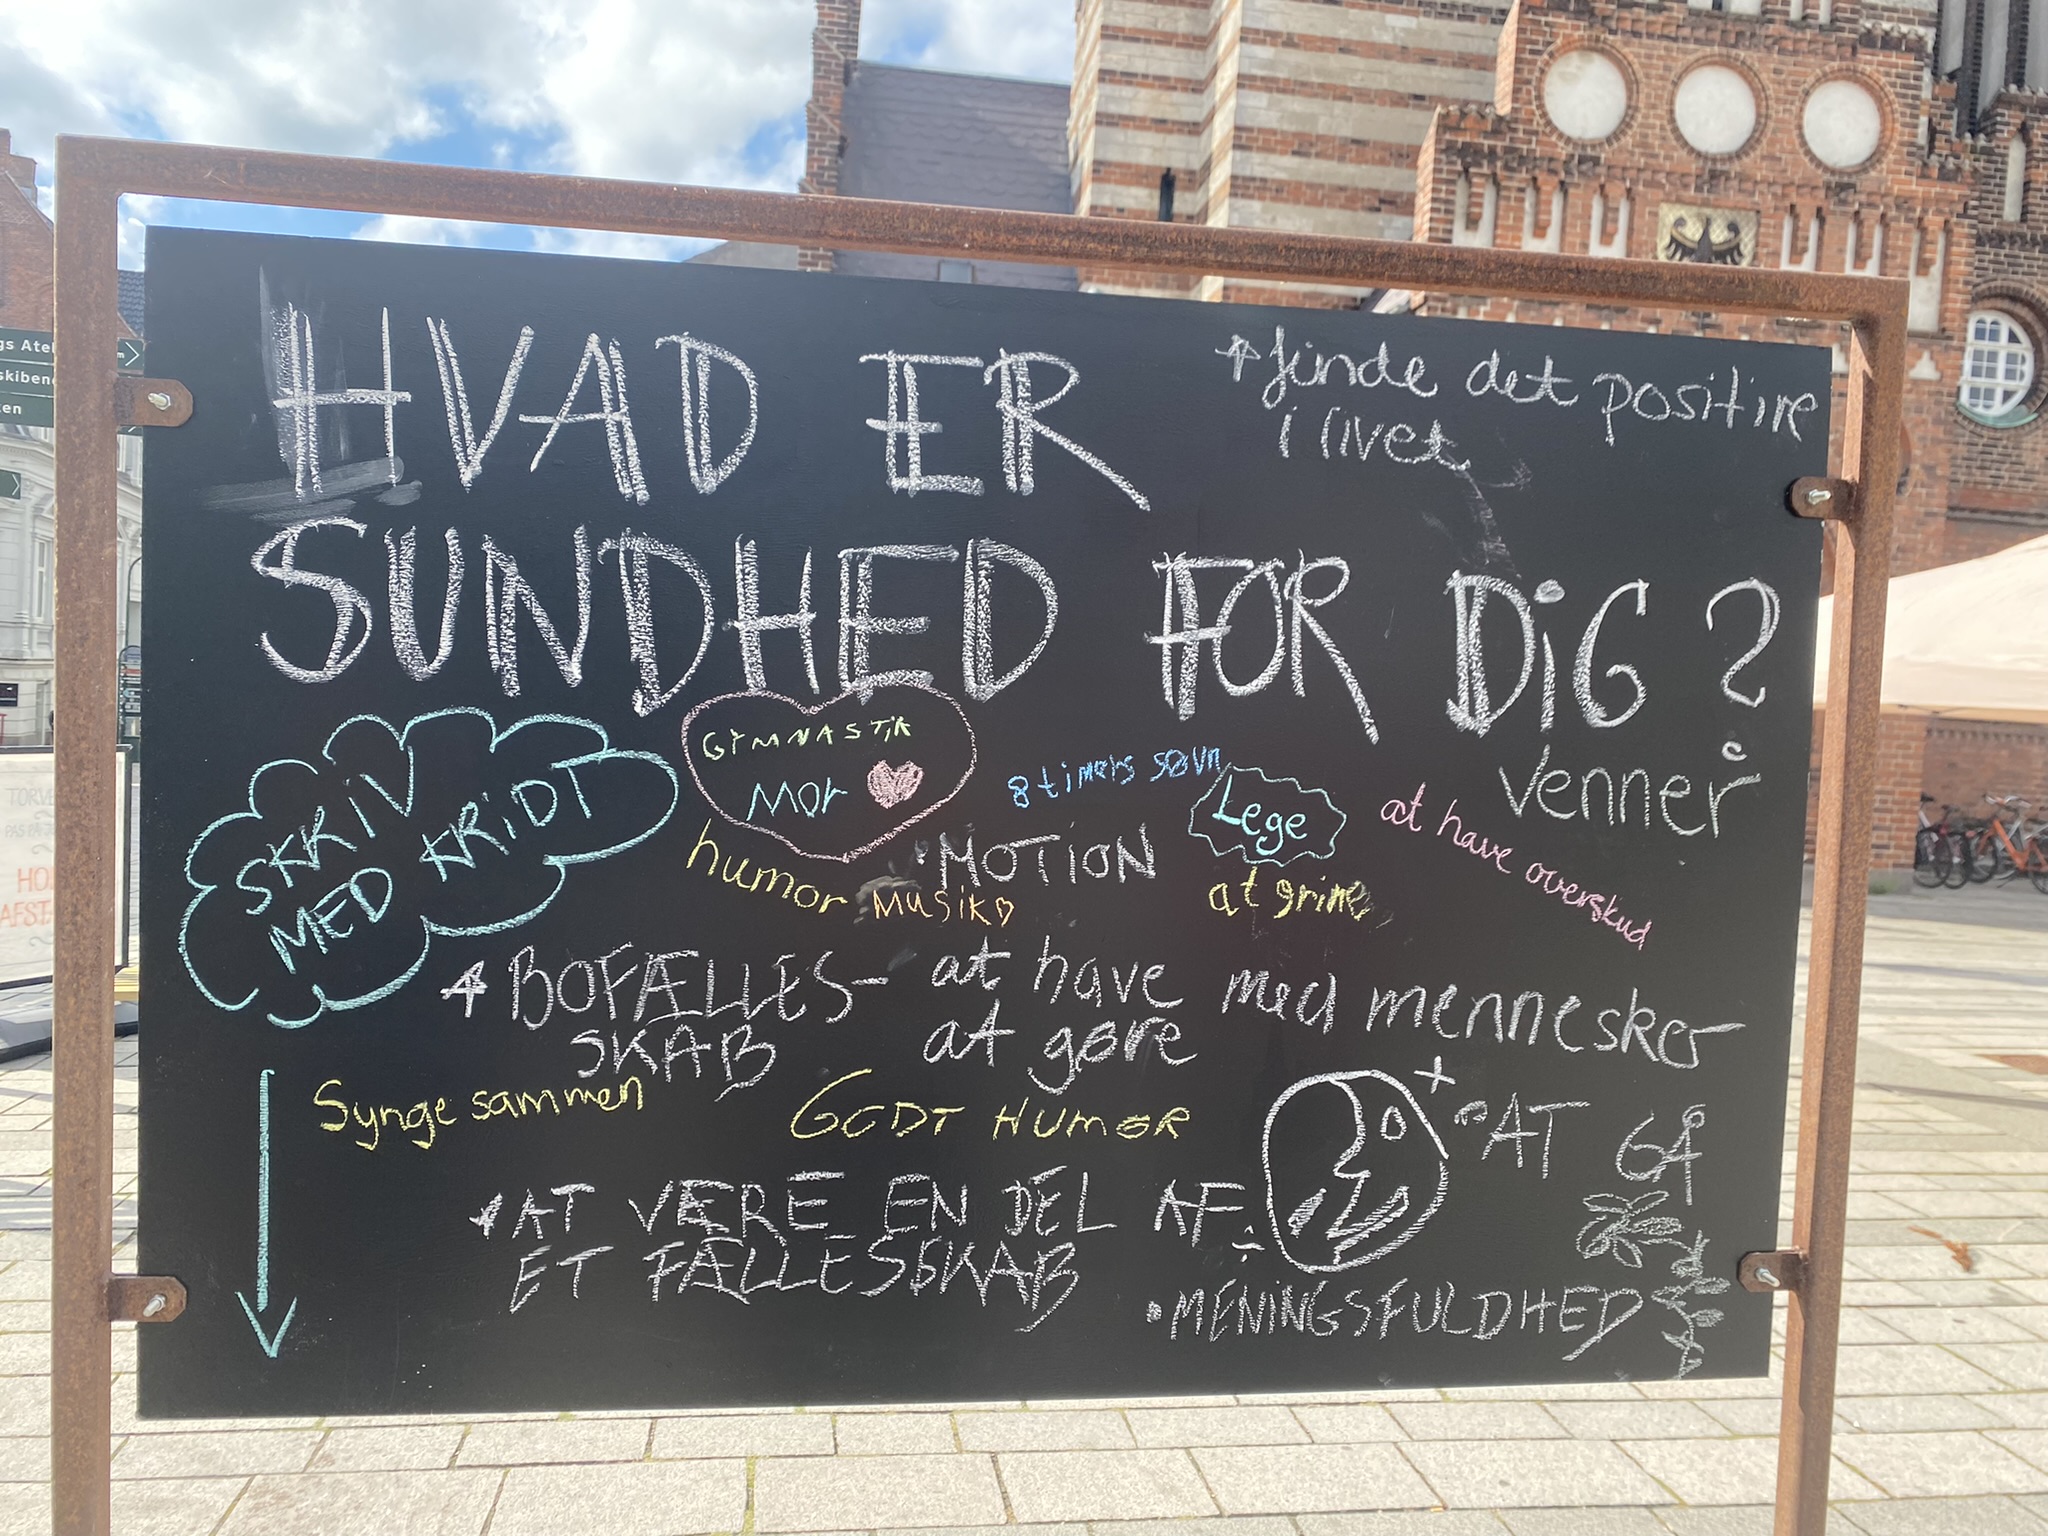 HVAD ER
SUNDHED FOR DiG?
finde det positive
i livet
SKRiV
MED KRiDT
GYMNASTiK
MOr
8 timers søvn
Lege
at have overskud
venner
humor
MOTiON
MUSiK
at grine
BOFÆLLES-
SKAB
at have med mennesker
at gøre
Synge sammen
GODT HUMØR
AT GÅ
AT VÆRE EN DEL AF
ET FÆLLESSKAB
MENINGSFULDHED